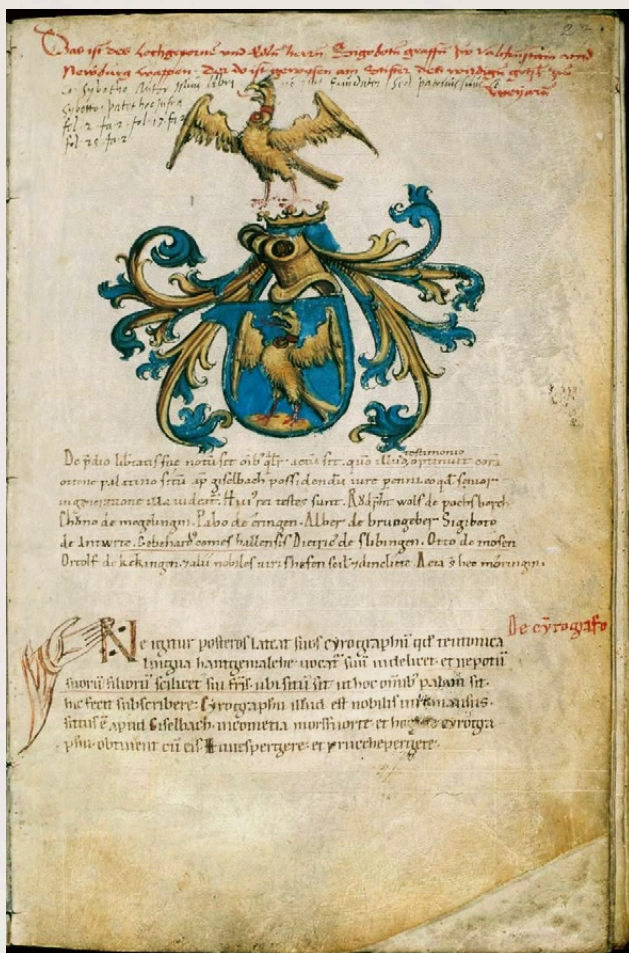 Das ist des hochgepornē und Edlñ herrñ Sigbotñ graffñ zw valkñstain und
Newburg wappen. Der do ist gewesen ain Stifter des wirdigñ gotzh
Weyarñ
Sybotho Autor libri Fundator
Sybotto patet hoc infra
fol. 2. fa. 2. fol. 17. fa. 2
fol. 25. fa. 2
De p̄dio libertatis sue notū sit oīb' qlr actū sit. quo illud testimonio optinuit corā
ottone palatino sitū ap giselbach possidendū iure ꝑhenni eo qd senior
in generatione illa videatr̄. Hui' rei testes sunt. Rudolfr̄ wolf de pochsperch
Chŏno de megelingin. Pabo de eringen. Alber de bruggeber Sigboto
de Antwrte. Gebehard' comes hallensis Dietric' de slibingen. Otto de mosen
Ortolf de kekingen. ⁊ alii nobiles viri Acta s̄ hec mŏringin.
De cyrografo
Ne igitur posteros lateat suos cyrographū qd teutonica
lingua hantgemalehe vocat' suū videlicet et nepotū
suorū filiorū scilicet sui frīs. ubi sitū sit ut hoc omīb' palam sit.
hic fecit subscribere: Cyrographū illud est nobilis viri mansus.
situs ē apud Giselbach in cometia morsfuorte et hoc cyrogra-
phū obtinent cū eis Hunespergere. et pruccheperigere.